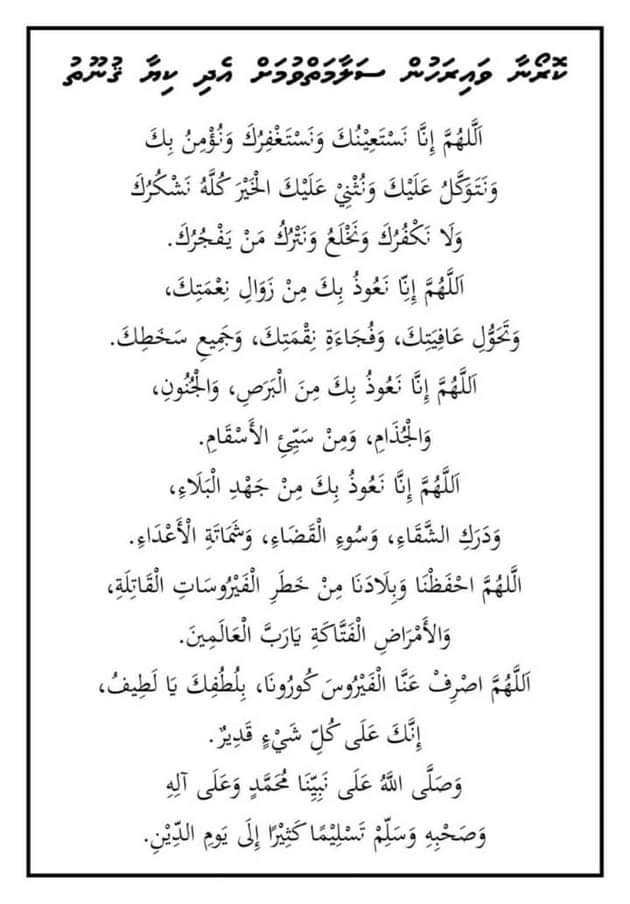 ކޮރޯނާ ވައިރަހުން ސަލާމަތްވުމަށް އެދި ކިޔާ ޤުނޫތު
اَللهُمَّ إِنَّا نَسْتَعِيْنُكَ وَنَسْتَغْفِرُكَ وَنُؤْمِنُ بِكَ
وَنَتَوَكَّلُ عَلَيْكَ وَنُثْنِيْ عَلَيْكَ الْخَيْرَ كُلَّهُ نَشْكُرُكَ
وَلَا نَكْفُرُكَ وَنَخْلَعُ وَنَتْرُكُ مَنْ يَفْجُرُكَ.
اَللَّهُمَّ إِنِّا نَعُوذُ بِكَ مِنْ زَوَالِ نِعْمَتِكَ،
وَتَحَوُّلِ عَافِيَتِكَ، وَفُجَاءَةِ نِقْمَتِكَ، وَجَمِيعِ سَخَطِكَ.
اَللَّهُمَّ إِنَّا نَعُوذُ بِكَ مِنَ الْبَرَصِ، وَالْجُنُونِ،
وَالْجُذَامِ، وَمِنْ سَيِّئِ الأَسْقَامِ.
اَللَّهُمَّ إِنَّا نَعُوذُ بِكَ مِنْ جَهْدِ الْبَلَاءِ،
وَدَرَكِ الشَّقَاءِ، وَسُوءِ الْقَضَاءِ، وَشَمَاتَةِ الْأَعْدَاءِ.
الَّلهُمَّ احْفَظْنَا وَبِلَادَنَا مِنْ خَطَرِ الْفَيْرُوسَاتِ الْقَاتِلَةِ،
وَالأَمْرَاضِ الْفَتَّاكَةِ يَارَبَّ الْعَالَمِينَ.
اَللَّهُمَّ اصْرِفْ عَنَّا الْفَيْرُوسَ كُورُونَا، بِلُطُفِكَ يَا لَطِيفُ،
إِنَّكَ عَلَى كُلِّ شَيْءٍ قَدِيرٌ.
وَصَلَّى اللَّهُ عَلَى نَبِيِّنَا مُحَمَّدٍ وَعَلَى آلِهِ
وَصَحْبِهِ وَسَلِّمْ تَسْلِيْمًا كَثِيْرًا إِلَى يَومِ الدِّيْنِ.